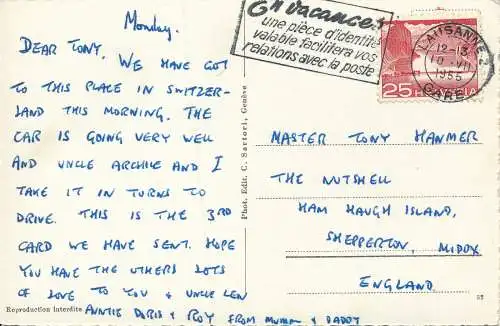 Monday.
DEAR TONY, WE HAVE GOT
TO THIS PLACE IN SWITZER-
LAND THIS MORNING. THE
CAR IS GOING VERY WELL
AND UNCLE ARCHIE AND I
TAKE IT IN TURNS TO
DRIVE. THIS IS THE 3RD
CARD WE HAVE SENT. HOPE
YOU HAVE THE OTHERS LOTS
OF LOVE TO YOU & UNCLE LEN
AUNTIE DORIS & ROY FROM MUMMY & DADDY
Reproduction Interdite
Phot. Edit. C. Sartori, Genève
En vacances
une pièce d'identité
valable facilitera vos
relations avec la poste
LAUSANNE 2
12-13
10 VII
1955
GARE
25 HELVETIA
MASTER TONY HANMER
THE NUTSHELL
HAM HAUGH ISLAND,
SHEPPERTON, MIDDX
ENGLAND.